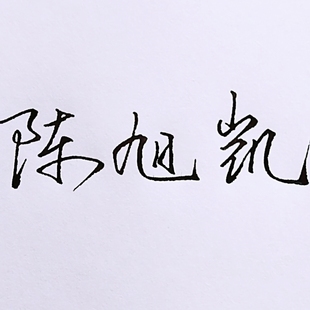 陈旭凯